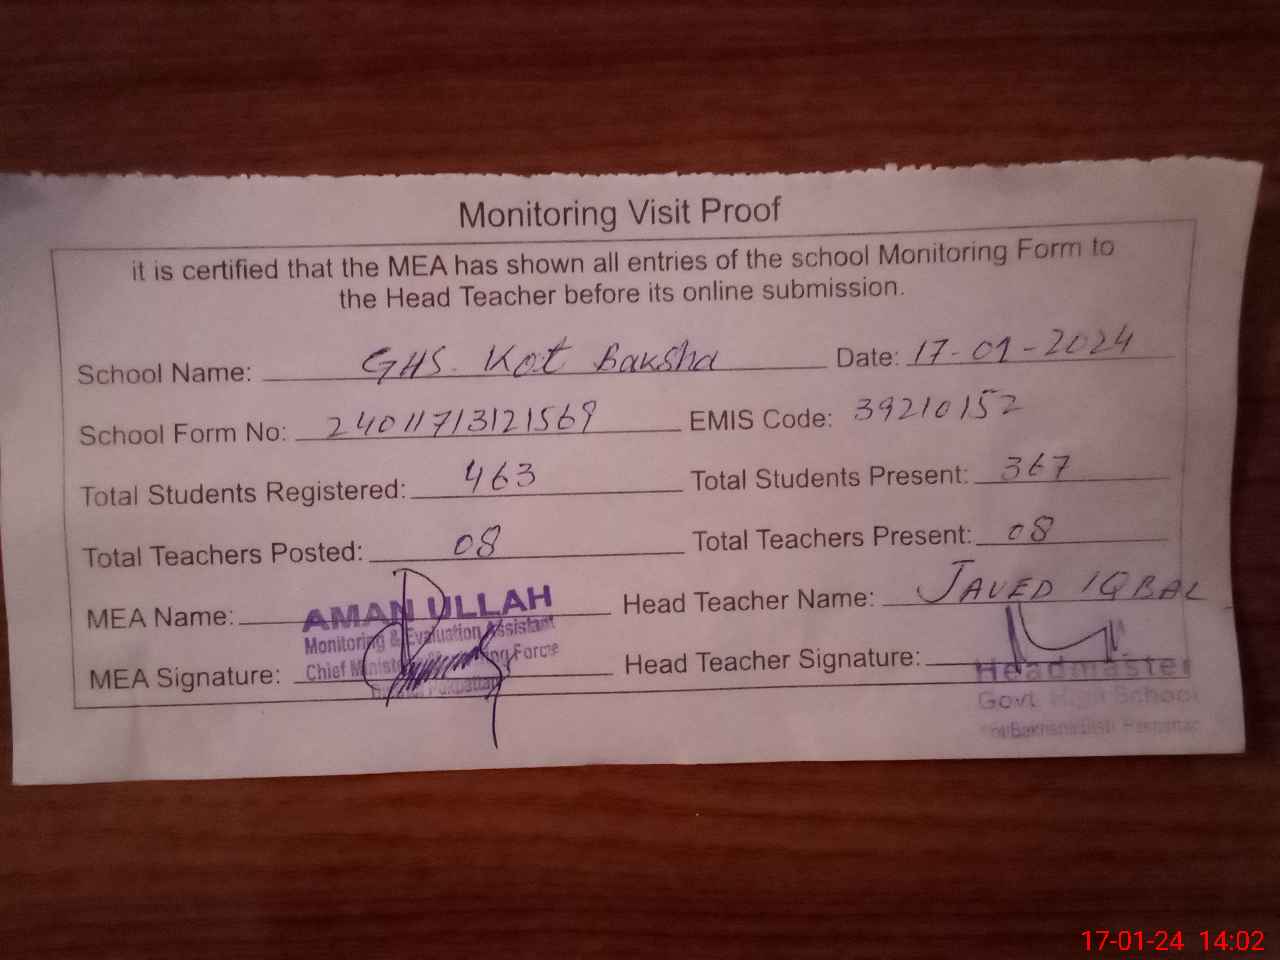 Monitoring Visit Proof
it is certified that the MEA has shown all entries of the school Monitoring Form to
the Head Teacher before its online submission.
School Name: GHS. Kot Baksha Date: 17-01-2024
School Form No: 24011713121569 EMIS Code: 39210152
Total Students Registered: 463 Total Students Present: 367
Total Teachers Posted: 08 Total Teachers Present: 08
MEA Name: AMAN ULLAH Head Teacher Name: JAVED IQBAL
Monitoring & Evaluation Assistant
MEA Signature: Chief Force Head Teacher Signature:
Headmaster
Govt. High School
17-01-24 14:02